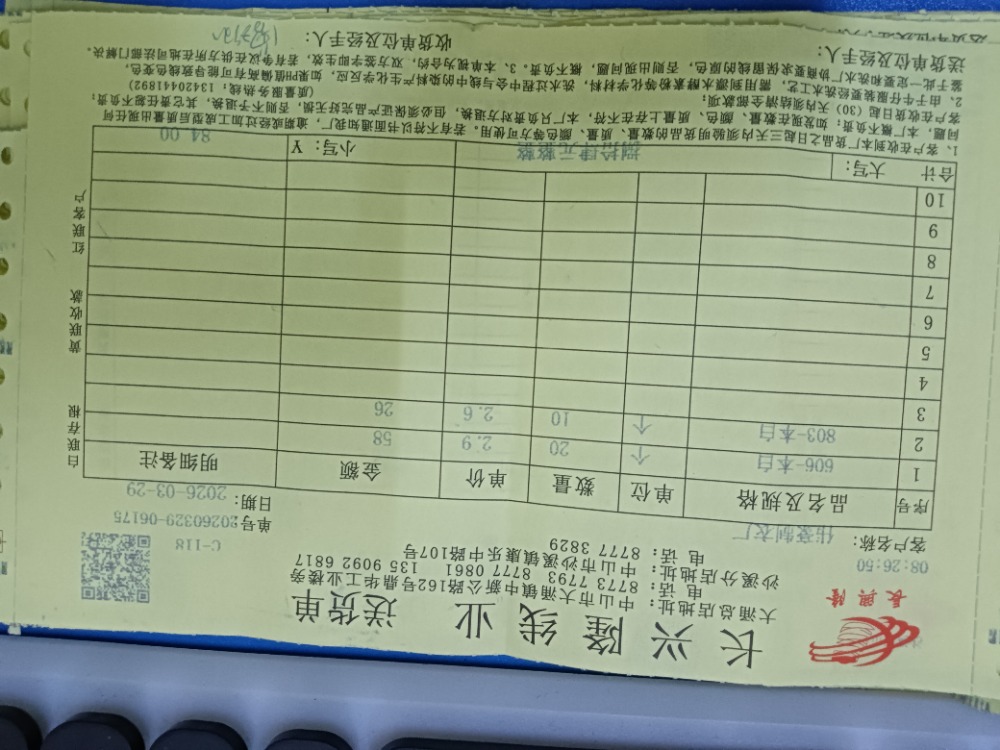 长兴隆线业 送货单
長興隆
大涌总店地址：中山市大涌镇中新公路162号鼎华工业楼旁
电话：8773 7793 8777 0861 135 9092 6817
沙溪分店地址：中山市沙溪镇康乐中路107号
电话：8777 3829
08:26:50
C-118
客户名称：
制衣厂
单号：20260329-06175
日期：2026-03-29
序号 品名及规格 单位 数量 单价 金额 明细备注
1 606-本白 个 20 2.9 58
2 803-本白 个 10 2.6 26
3
4
5
6
7
8
9
10
合计 大写：捌拾肆元整 小写：¥ 84.00
白联存根
黄联收款
红联客户
1、客户在收到本厂货品之日起三天内须验明货品的数量、质量、颜色等方可使用。若有不符以书面通知我厂，逾期或经过加工成型后质量出现任何
问题，本厂概不负责；如发现在数量、颜色、质量上存在不符，本厂只负责对方退换，但必须保证产品完好无损，否则不予退换，其它责任恕不负责；
客户在收货日起（30）天内须结清全部款项；
（质量服务热线：13420041892）
2、由于牛仔服装要经洗水工艺，需用到漂水酵素粉等化学材料，洗水过程中会与线中的染料产生化学反应，如果PH值偏高有可能导致线色变色，
鉴于此一定要和洗水厂协商要求保留线的原色，否则出现问题，概不负责。3、本单视为合约，双方签字即生效，若有争议在供方所在地司法部门解决。
送货单位及经手人：
收货单位及经手人：